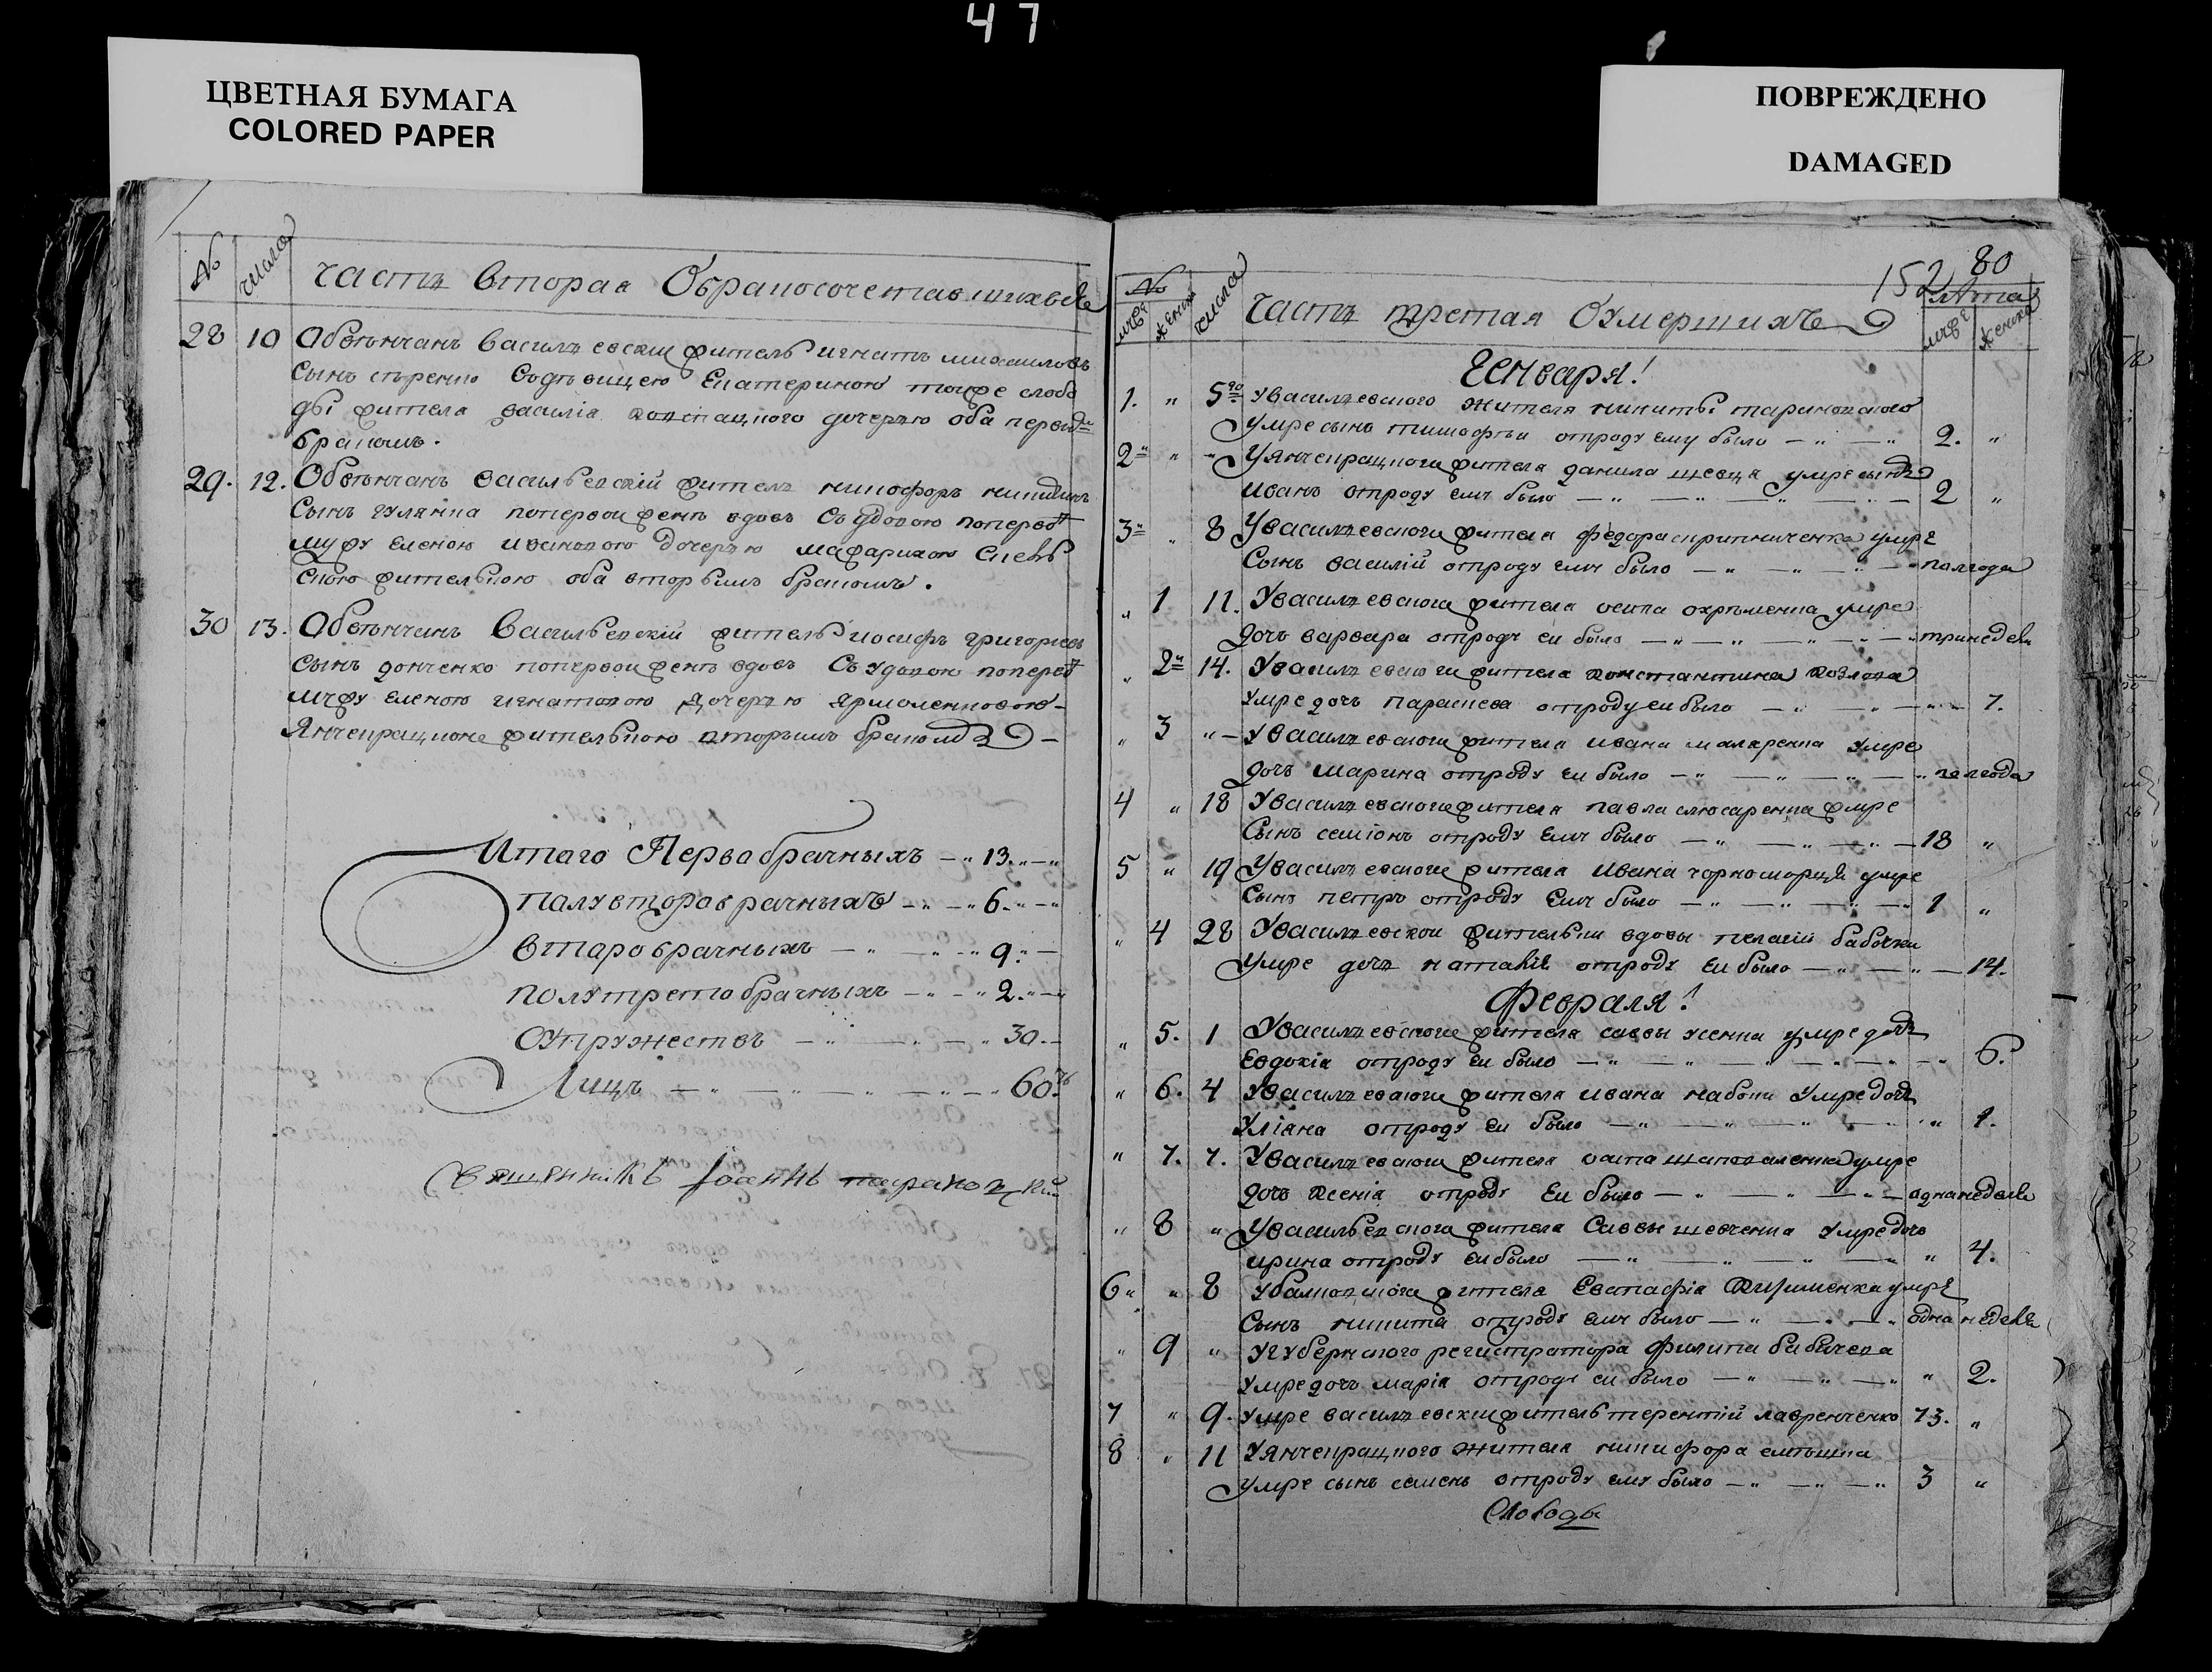 47
ЦВЕТНАЯ БУМАГА
COLORED PAPER
ПОВРЕЖДЕНО
DAMAGED
№ числа Часть вторая О бракосочетавшихся
28 10 Обвѣнчанъ васильевский житель игнатъ михаиловъ
сынъ Съдѣвицею Екатериною тояже слобо
ды жителя василія дочерью оба первымъ
бракомъ.
29. 12. Обвѣнчанъ васильевскій житель никифоръ
сынъ гулянка попервой женѣ вдовъ Съ вдовою попервому
мужу еленою ивановою дочерью
жителькою оба вторымъ бракомъ.
30 13. Обвѣнчанъ васильевскій житель иосифъ григориевъ
сынъ донченко попервой женѣ вдовъ Съ удовою поперво
мужу еленою игнатовою дочерью ярмоленковою
Янчекрацкою жителькою вторымъ бракомъ —
Итого Первобрачныхъ — 13. —
полувторобрачныхъ — 6. —
второбрачныхъ — 9. —
полутретобрачныхъ — 2. —
супружествъ — 30. —
Лицъ — 60.
Священникъ Іоаннъ тарановский
152 80
№ муже женска числа Часть третая О умершихъ лѣта муже женска
Генваря!
1. " 5го У васильевского жителя никиты тариновского
умре сынъ тимофѣй отроду ему было — 2. "
2 " " У янчекрацкого жителя данила шевца умре сынъ
иванъ отроду ему было — 2 "
3 " 8 У васильевского жителя федора скрипниченка умре
сынъ василій отроду ему было — полгода
" 1 11. У васильевского жителя осипа охрѣменка умре
дочь варвара отроду ей было — три недели
" 2 14. У васильевского жителя константина козлова
умре дочь параскева отроду ей было — 7.
" 3 " У васильевского жителя ивана маляренка умре
дочь марина отроду ей было — полгода
4 " 18 У васильевского жителя павла слюсаренка умре
сынъ семіонъ отроду ему было — 18 "
5 " 19 У васильевского жителя ивана чорноморца умре
сынъ петръ отроду ему было — 1 "
" 4 28 У васильевской жительки вдовы пелагій бабочки
умре дочь наталія отроду ей было — 14.
Февраля!
" 5. 1 У васильевского жителя саввы усенка умре дочь
Евдокія отроду ей было — 6.
" 6. 4 У васильевского жителя ивана набоки умре дочь
Уліана отроду ей было — " 1.
" 7. 7. У васильевского жителя осипа шаповаленка умре
дочь ксенія отроду ей было — одна неделя
" 8 " У васильевского жителя Саввы шевченка умре дочь
ирина отроду ей было — " 4.
6 " 8 У балковского жителя Евстафія умре
сынъ никита отроду ему было — одна неделя
" 9 " У губернского регистратора филипа бабичева
умре дочь марія отроду ей было — " 2.
7 " 9. Умре васильевский житель терентій лавренченко 73. "
8 " 11 У янчекрацкого жителя никифора
умре сынъ семенъ отроду ему было — 3 "
Слободы